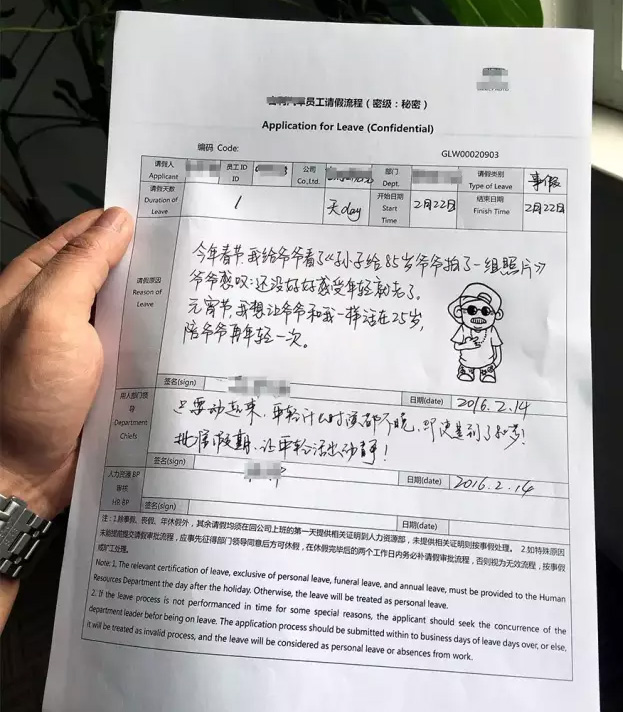 员工请假流程（密级：秘密）
Application for Leave (Confidential)
编码 Code:
GLW00020903
请假人 Applicant
员工ID ID
公司 Co.,Ltd.
部门 Dept.
请假类别 Type of Leave
事假
请假天数 Duration of Leave
1
天day
开始日期 Start Time
2月22日
结束日期 Finish Time
2月22日
请假原因 Reason of Leave
今年春节我给爷爷看了《孙子给85岁爷爷拍了一组照片》
爷爷感叹:还没好好感受年轻就老了。
元宵节,我想让爷爷和我一样活在25岁,
陪爷爷再年轻一次。
签名(sign)
日期(date)
2016.2.14
用人部门领导 Department Chiefs
只要动起来,年轻什么时候都不晚,即使是到了80岁!
批准假期,让年轻活出动静!
签名(sign)
日期(date)
2016.2.14
人力资源BP审核 HR BP
签名(sign)
日期(date)
注：1.除事假、丧假、年休假外，其余请假均须在回公司上班的第一天提供相关证明到人力资源部，未提供相关证明到按事假处理。 2.如特殊原因
未能提前提交请假审批流程，应事先征得部门领导同意后方可休假，在休假完毕后的两个工作日内务必补请假审批流程，否则视为无效流程，按事假
或旷工处理。
Note: 1. The relevant certification of leave, exclusive of personal leave, funeral leave, and annual leave, must be provided to the Human
Resources Department the day after the holiday. Otherwise, the leave will be treated as personal leave.
2. If the leave process is not performanced in time for some special reasons, the applicant should seek the concurrence of the
department leader befor being on leave. The application process should be submitted within to business days of leave days over, or else,
it will be treated as invalid process, and the leave will be considered as personal leave or absences from work.